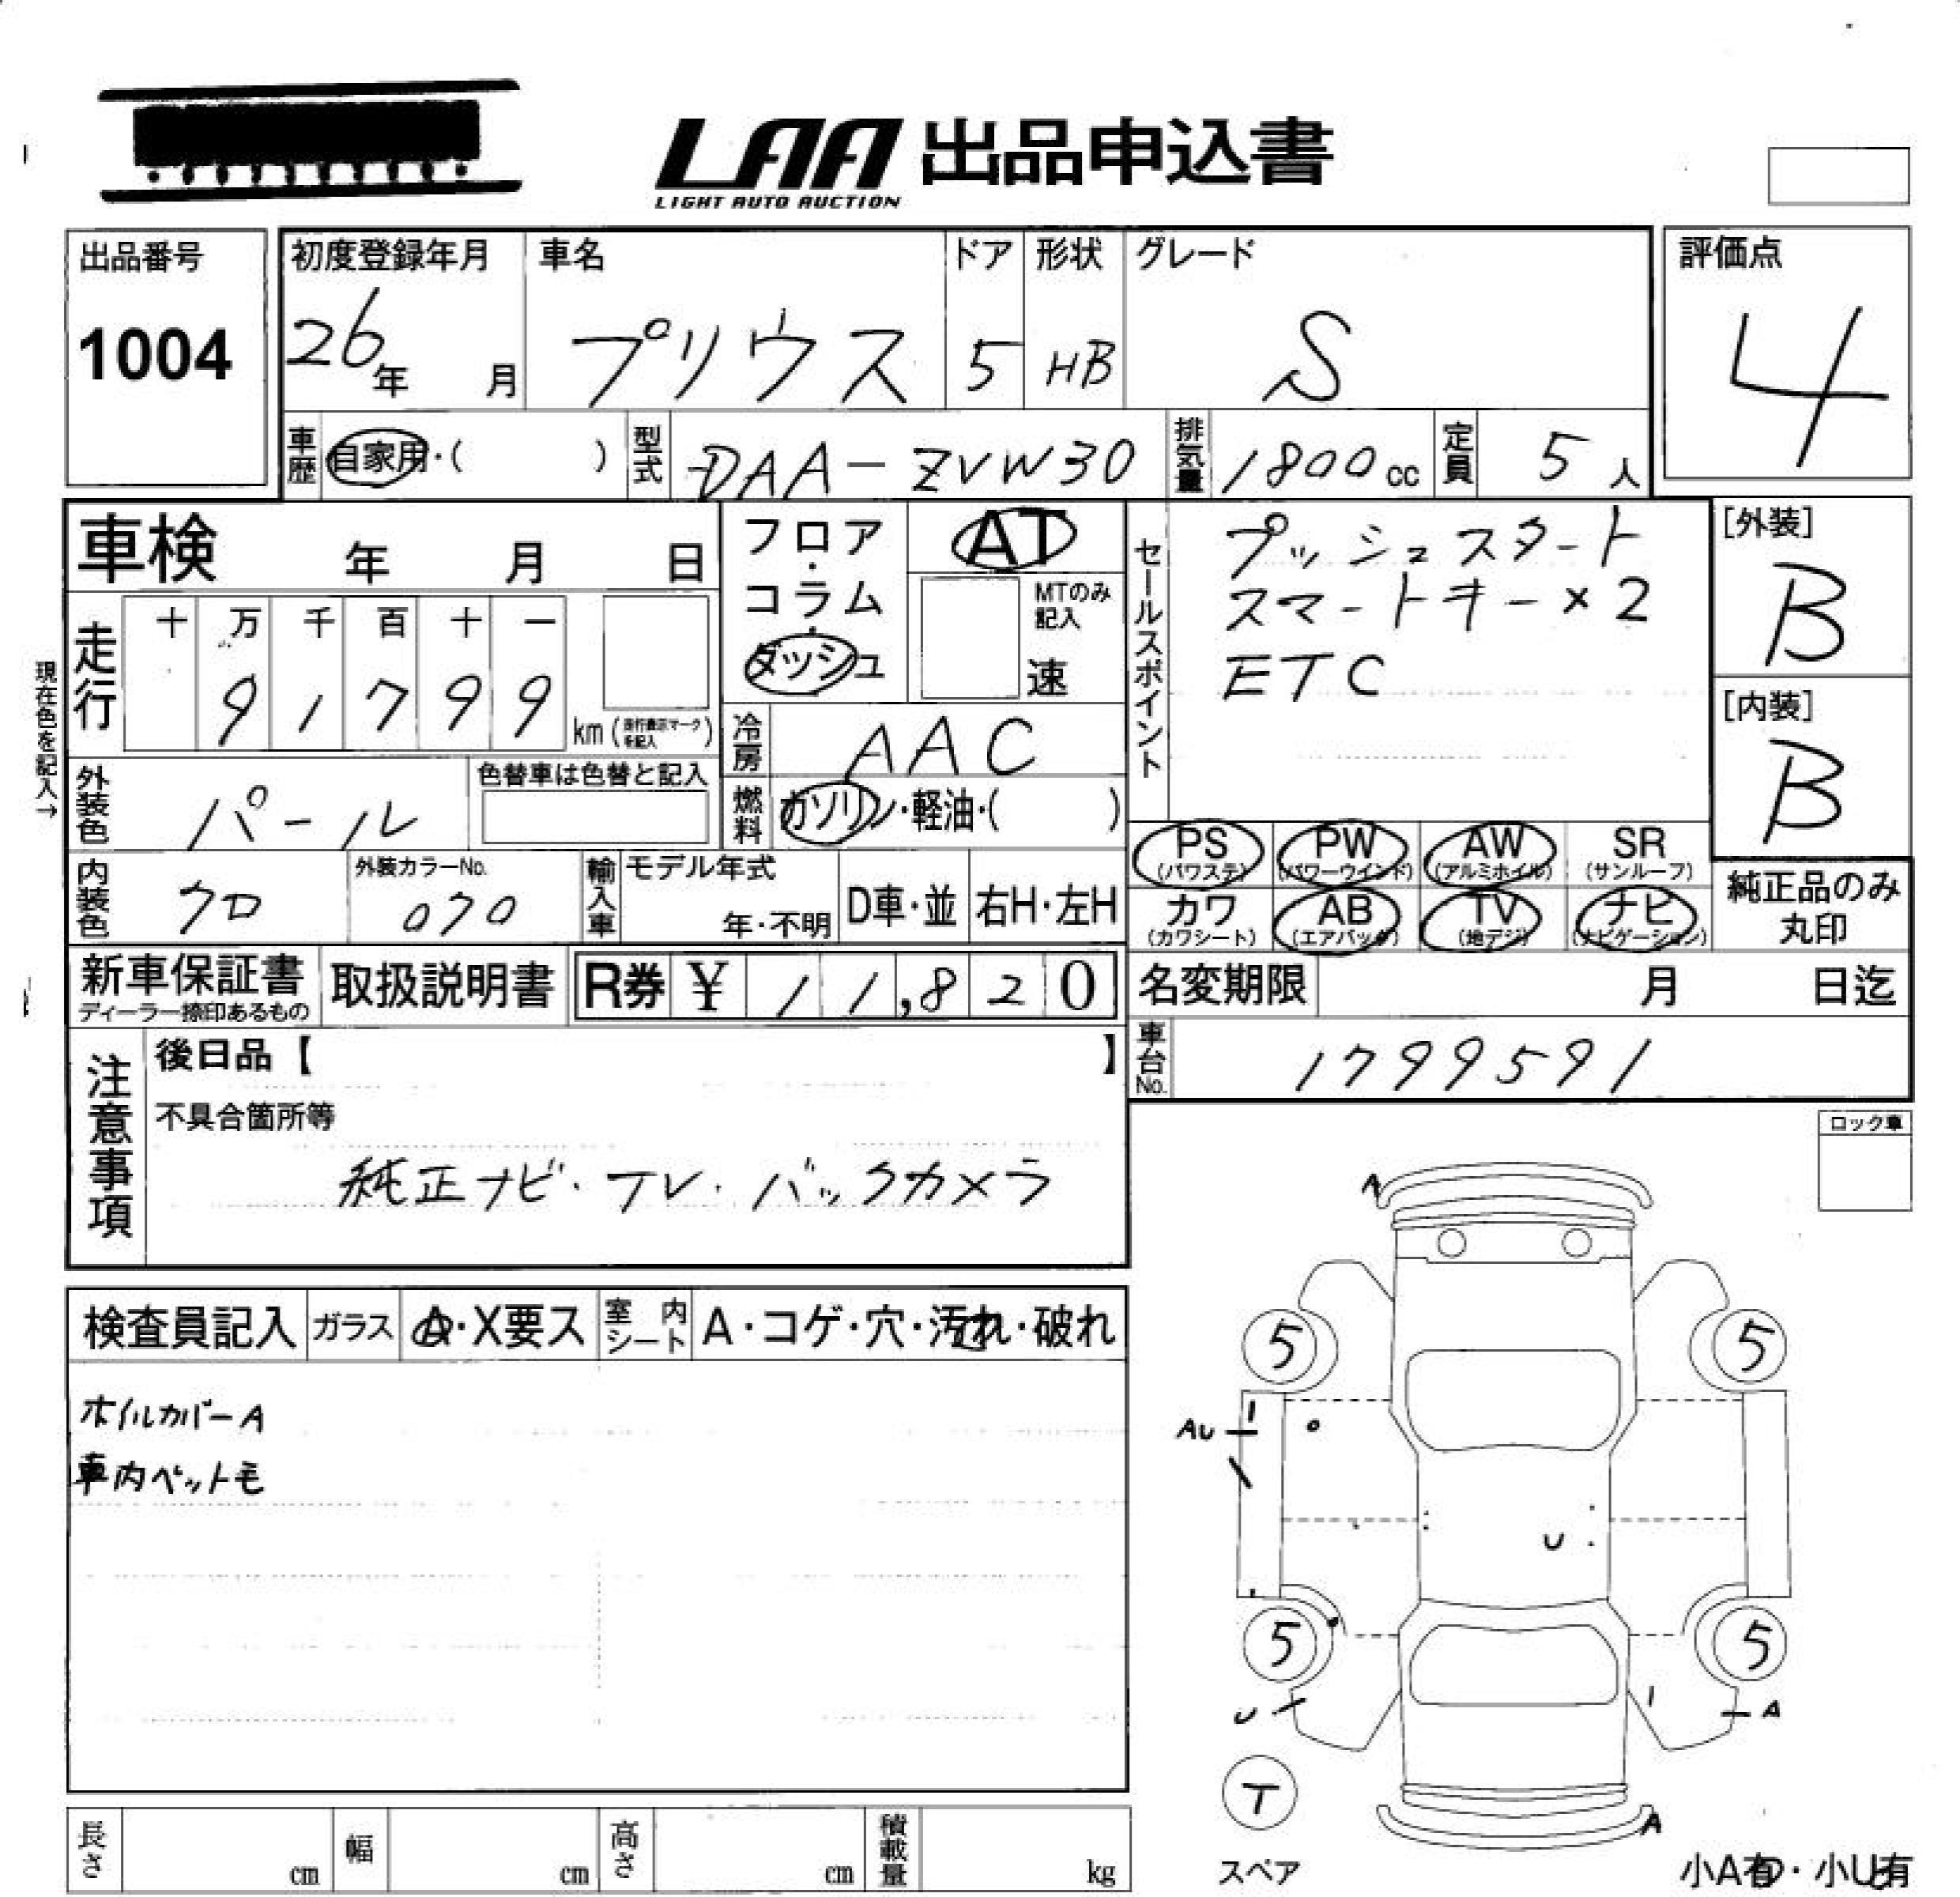 LAA 出品申込書
LIGHT AUTO AUCTION
出品番号
1004
初度登録年月
26年 月
車名
プリウス
ドア
5
形状
HB
グレード
S
評価点
4
車歴
自家用・( )
型式
DAA-ZVW30
排気量
1800cc
定員
5人
車検 年 月 日
現在色を記入→
走行
十 万 千 百 十 一
9 1 7 9 9
km(走行表示マークを記入)
フロア・コラム・ダッシュ
AT
MTのみ記入
速
冷房
AAC
燃料
ガソリン・軽油・( )
セールスポイント
プッシュスタート
スマートキー×2
ETC
[外装]
B
[内装]
B
外装色
パール
色替車は色替と記入
内装色
クロ
外装カラーNo.
070
輸入車
モデル年式
年・不明
D車・並
右H・左H
PS(パワステ)
PW(パワーウインド)
AW(アルミホイル)
SR(サンルーフ)
カワ(カワシート)
AB(エアバッグ)
TV(地デジ)
ナビ(ナビゲーション)
純正品のみ
丸印
新車保証書
ディーラー捺印あるもの
取扱説明書
R券 ¥ 11,820
名変期限 月 日迄
車台No.
1799591
注意事項
後日品【 】
不具合箇所等
純正ナビ・TV・バックカメラ
ロック車
検査員記入
ガラス
A・X要ス
室内シート
A・コゲ・穴・汚れ・破れ
ホイルカバーA
車内ペット毛
A
5
5
AU
U
5
5
U
A
T
スペア
A
小A有・小U有
長さ cm
幅 cm
高さ cm
積載量 kg